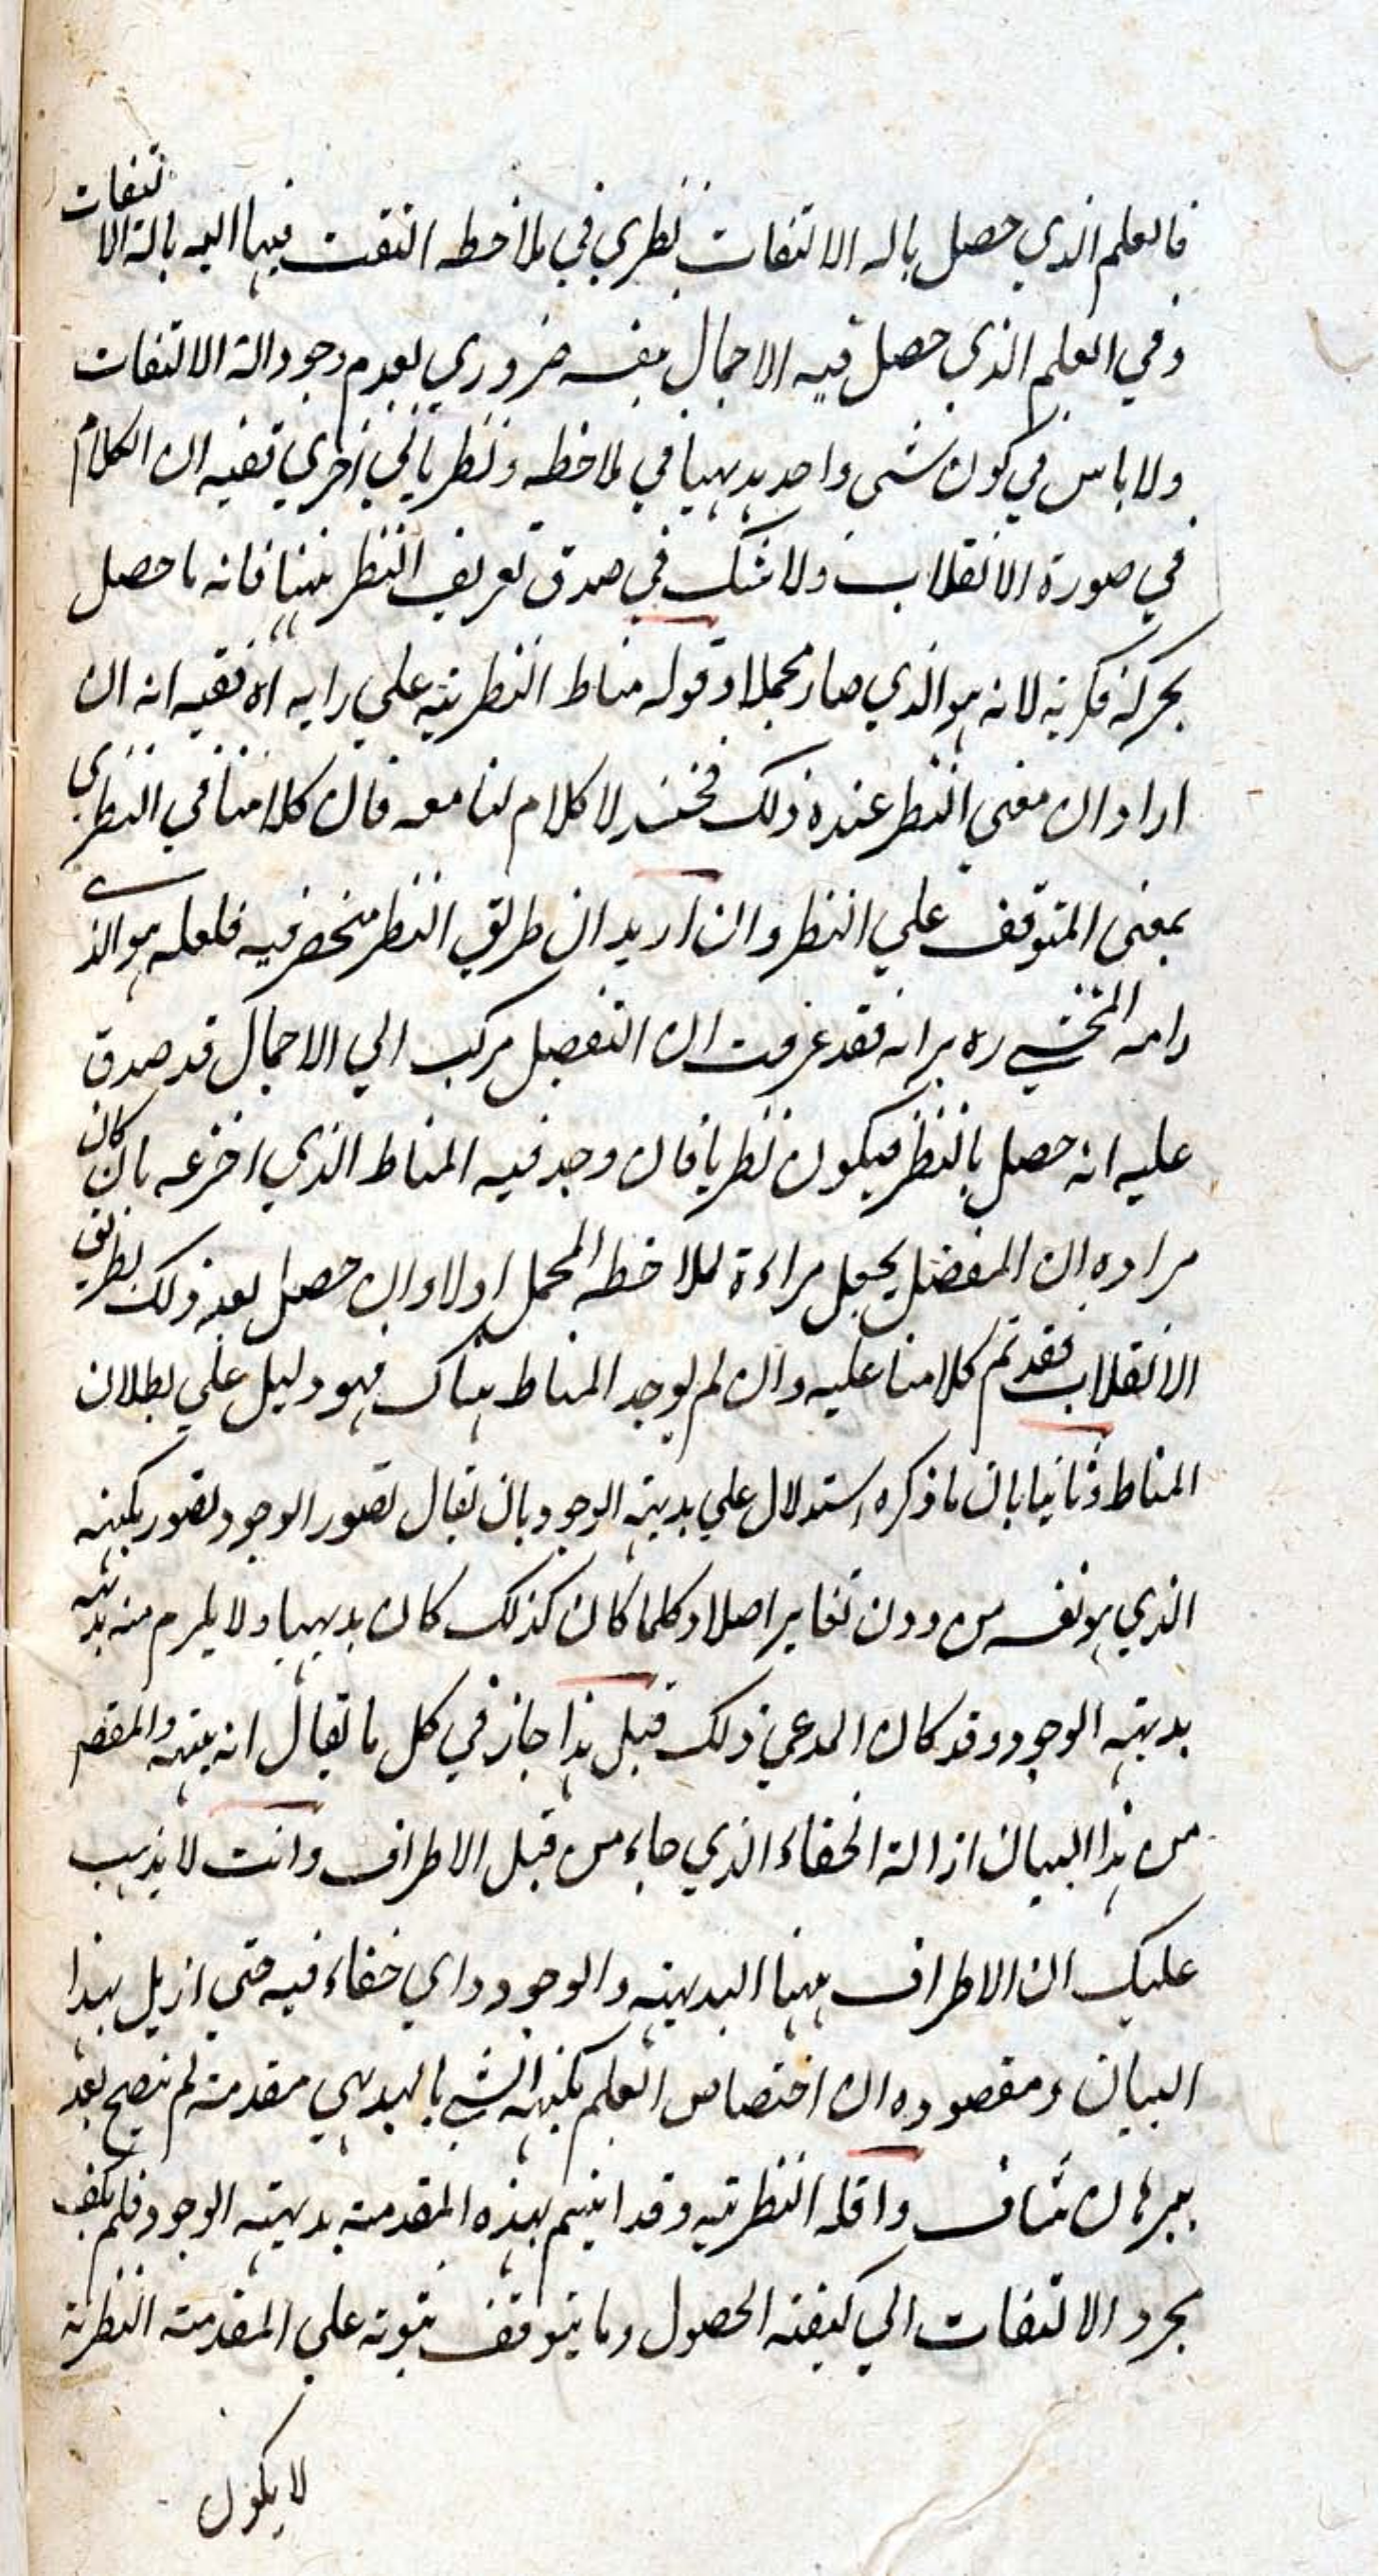 فالعلم الذي حصل بالة الالتفات نظري في ملاحظة التفت فيها اليه بالة الالتفات
وفي العلم الذي حصل فيه الاجمال بنفسه ضروري لعدم وجود الة الالتفات
ولا باس في كون شئ واحد بديهيا في ملاحظة ونظريا في اخري ففيه ان الكلام
في صورة الانقلاب ولا شك في صدق تعريف النظر ههنا فانه ما حصل
بحركة فكرية لانه هو الذي صار مجملا وقوله مناط النظرية علي رايه اه ففيه انه ان
اراد ان معني النظر عنده ذلك فحينئذ لا كلام لنا معه فان كلامنا في النظري
بمعنى المتوقف علي النظر وان اريد ان طريق النظر منحصر فيه فلعله هو الذي
رامه المحشي ره يرانه فقد عرفت ان التفصيل مركب الي الاجمال قد صدق
عليه انه حصل بالنظر فيكون نظريا فان وجد فيه المناط الذي اخترعه بان كان
مراده ان المفصل يجعل مراءة لملاحظة المجمل اولا وان حصل بعد ذلك بطريق
الانقلاب فقد تم كلامنا عليه وان لم يوجد المناط هناك فهو دليل علي بطلان
المناط وثانيا بان ما ذكره استدلال علي بديهة الوجود بان يقال تصور الوجود تصور بكنهه
الذي هو نفسه من دون تغاير اصلا وكلما كان كذلك كان بديهيا ولا يلزم منه بديهة
بديهة الوجود وقد كان المدعي ذلك قيل هذا جاز في كل ما يقال انه بينة والمقصم
من هذا البيان ازالة الخفاء الذي جاء من قبل الاطراف وانت لا يذهب
عليك ان الاطراف ههنا البديهة والوجود واي خفاء فيه حتي ازيل بهذا
البيان ومقصوده ان اختصاص العلم بكنه الشي بالبديهي مقدمة لم تصح بعد
ببرهان شاف واقله النظرية وقد اثبتم بهذه المقدمة بديهة الوجود فلم يكف
مجرد الالتفات الي كيفية الحصول وما يتوقف ثبوته علي المقدمة النظرية
لا يكون